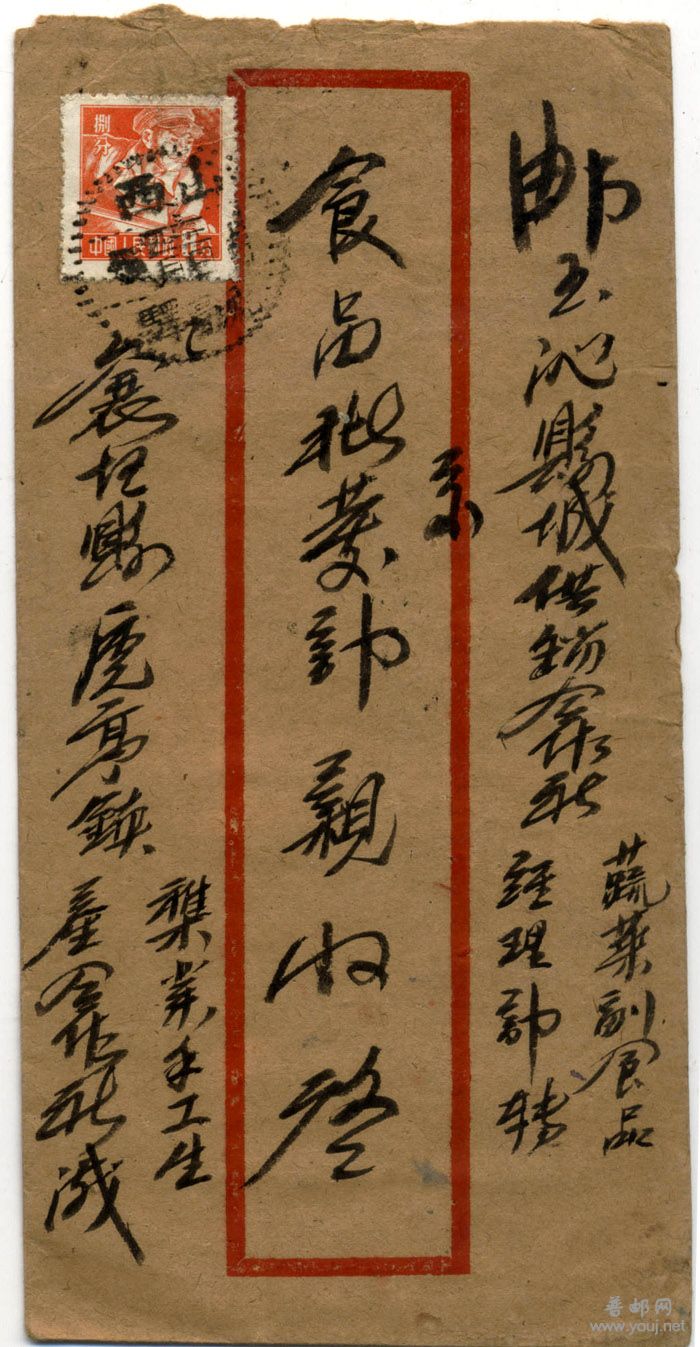 邮至沁縣城供銷合作社
蔬菜副食品
經理部轉
交
食品批發部親收啓
襄垣縣虒亭鎮
業手工生
產合作社緘
捌分
中国人民邮政
山西
普邮网
www.youj.net